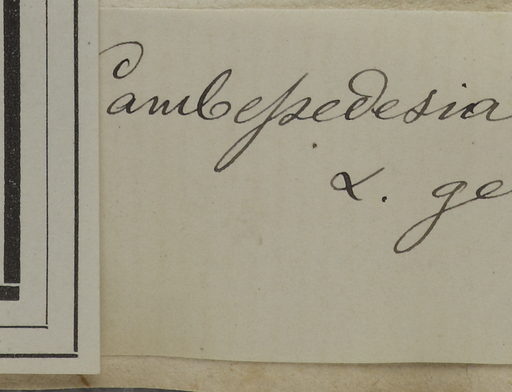 Cambessedesia
α. ge